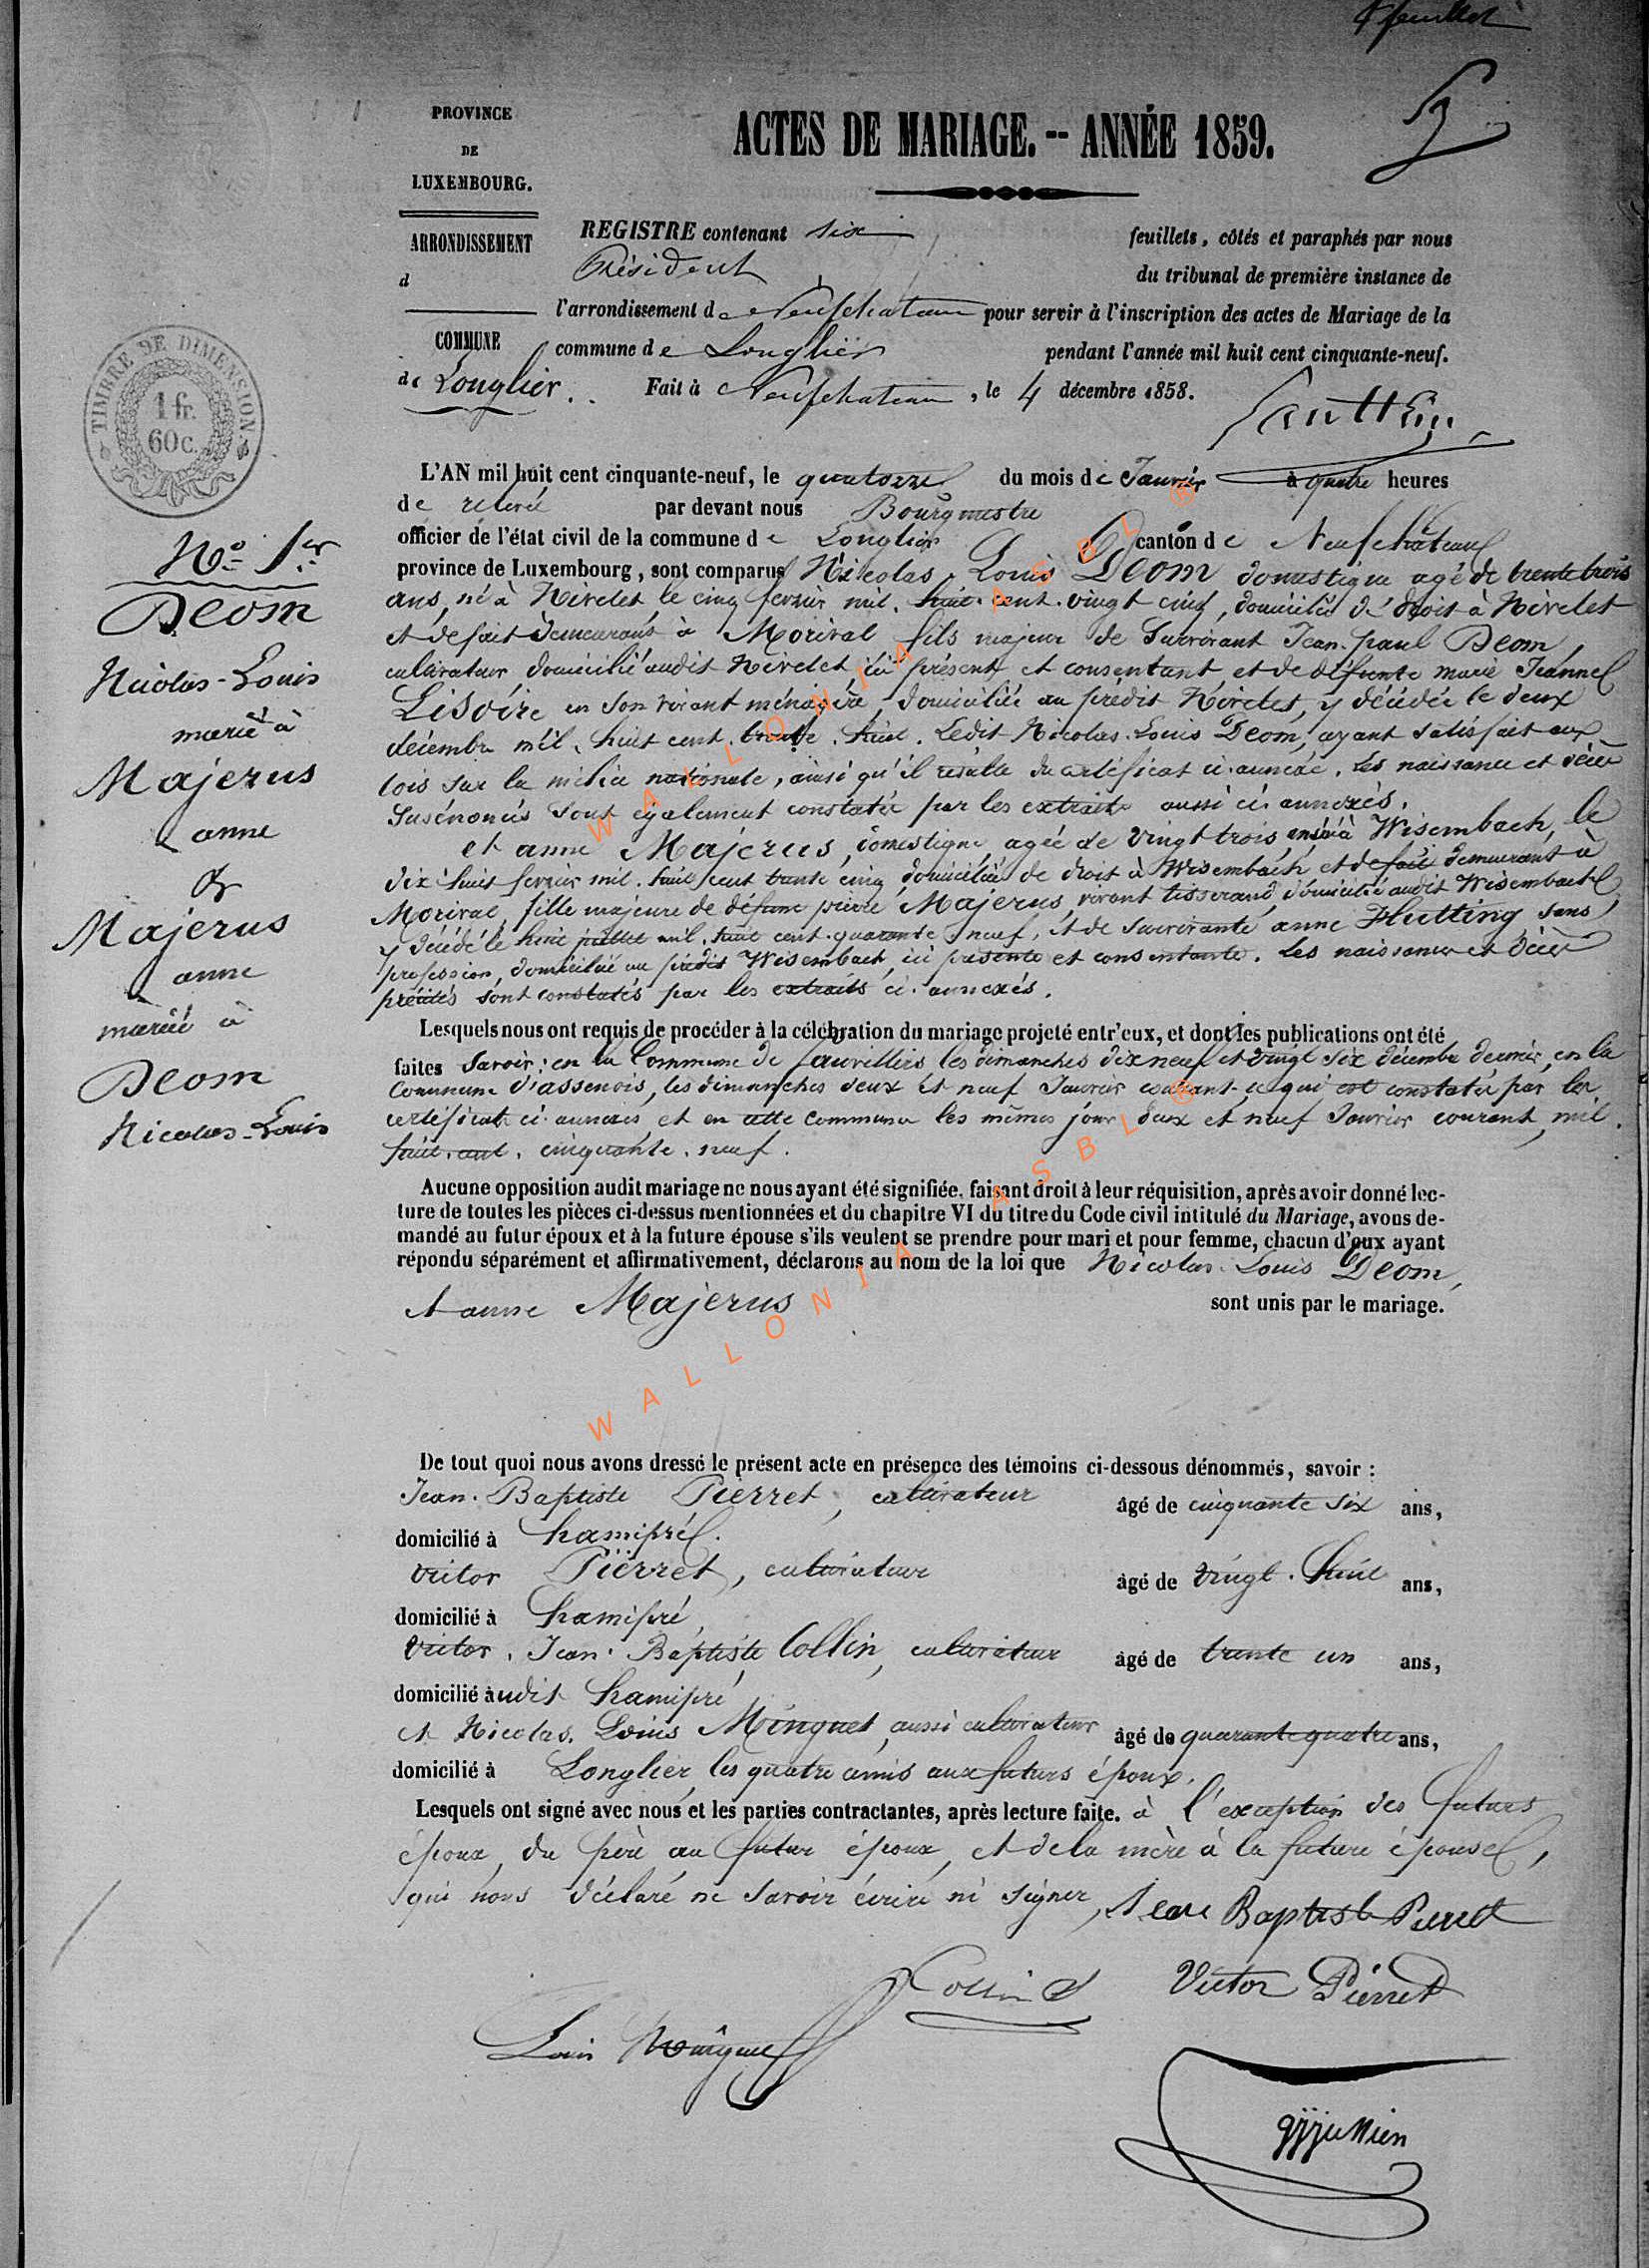 1er feuillet
PROVINCE
DE
LUXEMBOURG.
ARRONDISSEMENT
d
COMMUNE
de Longlier.
ACTES DE MARIAGE. -- ANNÉE 1859.
REGISTRE contenant six feuillets, côtés et paraphés par nous
Président du tribunal de première instance de
l'arrondissement de Neufchateau pour servir à l'inscription des actes de Mariage de la
commune de Longlier pendant l'année mil huit cent cinquante-neuf.
Fait à Neufchateau, le 4 décembre 1858.
TIMBRE DE DIMENSION
1 fr.
60c.
No 1er
Deom
Nicolas-Louis
marié à
Majerus
anne
&
Majerus
anne
mariée à
Deom
Nicolas-Louis
L'AN mil huit cent cinquante-neuf, le quatorze du mois de Janvier à quatre heures
de relevée par devant nous Bourgmestre
officier de l'état civil de la commune de Longlier canton de Neufchateau
province de Luxembourg, sont comparus Nicolas Louis Deom domestique agé de trente trois
ans, né à Nivelet le cinq fevrier mil huit cent vingt cinq, domicilié de droit à Nivelet
et de fait demeurant à Morival fils majeur de Survivant Jean-paul Deom,
cultivateur domicilié audit Nivelet, ici présent et consentant, et de défunte marie Jeanne
Lisoire en son vivant ménagère, domiciliée au predit Nivelet, y décédée le deux
décembre mil huit cent trente huit. Ledit Nicolas Louis Deom, ayant satisfait aux
lois sur la milice nationale, ainsi qu'il resulte du certificat ci-annexé. Les naissance et décès
susénoncés sont également constatés par les extraits aussi ci-annexés.
et anne Majerus, domestique agée de vingt trois ans, née à Wisembach, le
dix huit fevrier mil huit cent trente cinq domiciliée de droit à Wisembach et de fait demeurant à
Morival, fille majeure de défunt pierre Majerus, vivant tisserand, domicilié audit Wisembach
y décédé le huit juillet mil huit cent quarante neuf, et de survivante anne Hutting, sans
profession, domiciliée au predit Wisembach, ici présente et consentante. Les naissance et décès
précités sont constatés par les extraits ci-annexés.
Lesquels nous ont requis de procéder à la célébration du mariage projeté entr'eux, et dont les publications ont été
faites savoir: en la Commune de fauvillers les dimanches dix neuf et vingt six décembre dernier, en la
Commune d'assenois, les dimanches deux et neuf Janvier courant ce qui est constaté par les
certificats ci-annexés et en cette commune les mêmes jours deux et neuf Janvier courant, mil
huit cent cinquante neuf.
Aucune opposition audit mariage ne nous ayant été signifiée, faisant droit à leur réquisition, après avoir donné lec-
ture de toutes les pièces ci-dessus mentionnées et du chapitre VI du titre du Code civil intitulé du Mariage, avons de-
mandé au futur époux et à la future épouse s'ils veulent se prendre pour mari et pour femme, chacun d'eux ayant
répondu séparément et affirmativement, déclarons au nom de la loi que Nicolas Louis Deom,
et anne Majerus sont unis par le mariage.
De tout quoi nous avons dressé le présent acte en présence des témoins ci-dessous dénommés, savoir :
Jean-Baptiste Pierret, cultivateur âgé de cinquante six ans,
domicilié à hamipré.
victor Pierret, cultivateur âgé de vingt huit ans,
domicilié à hamipré,
victor Jean Baptiste Collin, cultivateur âgé de trente un ans,
domicilié audit hamipré
et Nicolas Louis Minguet, aussi cultivateur âgé de quarante quatre ans,
domicilié à Longlier, les quatre amis aux futurs époux.
Lesquels ont signé avec nous et les parties contractantes, après lecture faite. à l'exception des futurs
époux, du père au futur époux, et de la mère à la future épouse,
qui nous déclaré ne savoir écrire ni signer,
Jean Baptiste Pierret
Collin
Victor Pierret
Louis
WALLONIA ASBL ®
WALLONIA ASBL ®